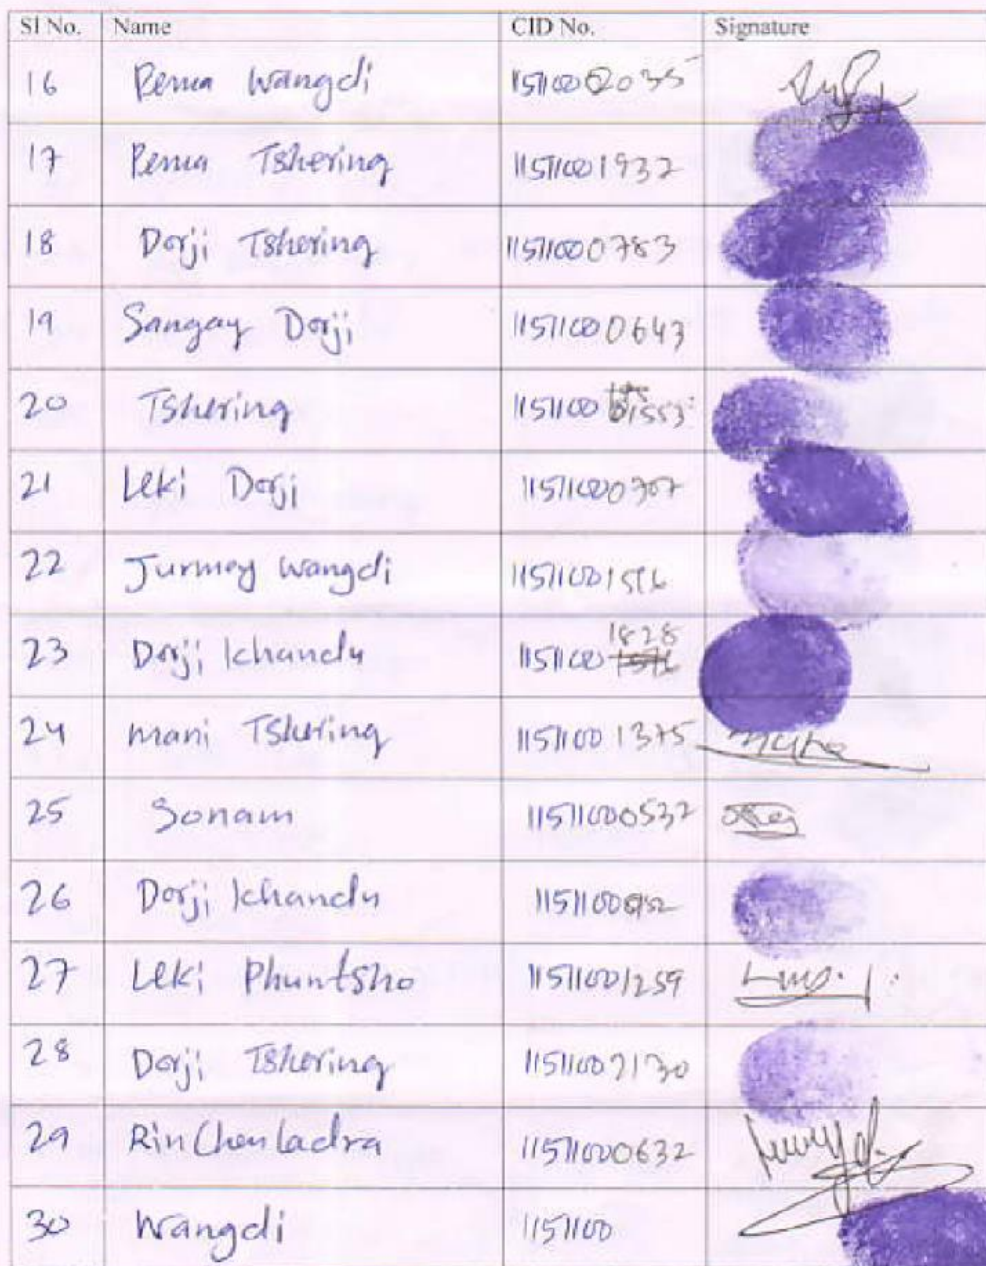 Sl No. Name CID No. Signature
16 Pema Wangdi 11511002035
17 Pema Tshering 11511001932
18 Dorji Tshering 11511000783
19 Sangay Dorji 11511000643
20 Tshering
21 Leki Dorji 11511000307
22 Jurmey Wangdi
23 Dorji Khandu 1828
24 Mani Tshering 11511001375
25 Sonam 11511000532
26 Dorji Khandu
27 Leki Phuntsho 11511001259
28 Dorji Tshering 11511002130
29 Rinchen Ladra 11511000632
30 Wangdi 1151100